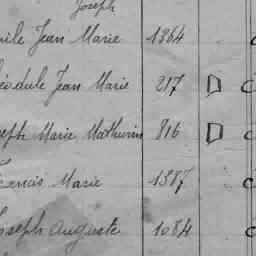 Joseph
ile Jean Marie 1364
éodule Jean Marie 217 D
seph Marie Mathurin 816 D
Francis Marie 1387
Joseph Auguste 1084